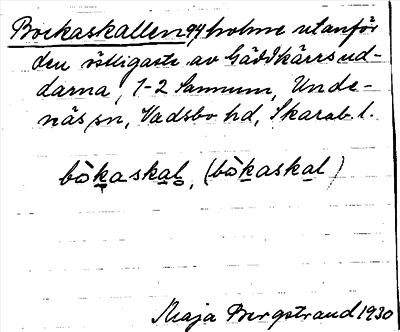 Bockaskallen 94 holme utanför
den östligaste av Gäddkärrsud-
darna, 1-2 Sannum, Unde-
näs sn, Vadsbo hd, Skarab. l.
bòkaskal, (bòkaskal)
Maja Bergstrand 1930